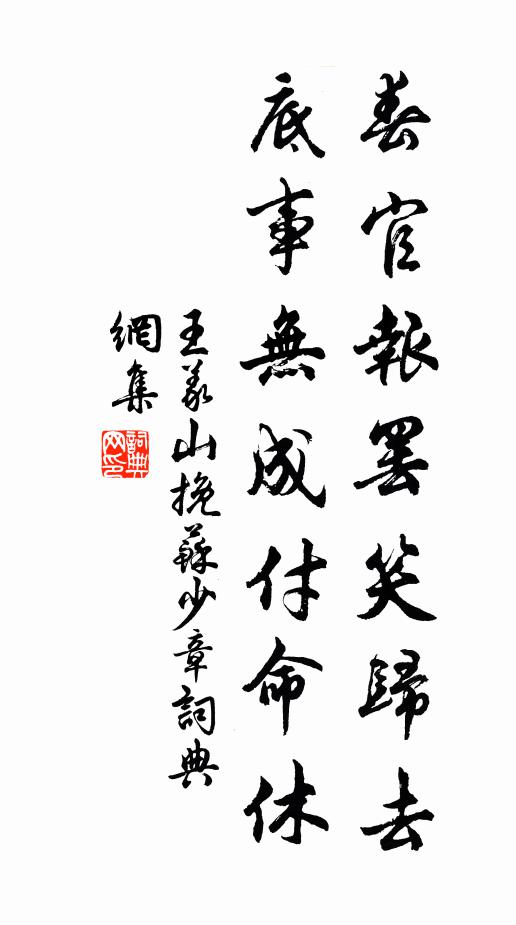 春官報罷笑歸去
底事無成付命休
王義山挽蘇少章詞典
網集
詞典
网印